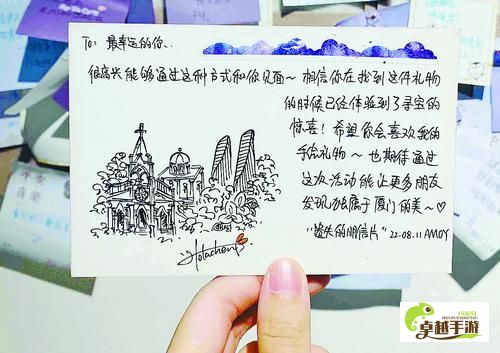 To: 最幸运的你..
很高兴能够通过这种方式和你见面~ 相信你在找到这件礼物
的时候已经体验到了寻宝的
惊喜! 希望你会喜欢我的
手绘礼物~ 也期待通过
这次活动能让更多朋友
发现办属于厦门的美~♡
"遗失的明信片" 22.08.11 AMOY
Holachen
卓越手游